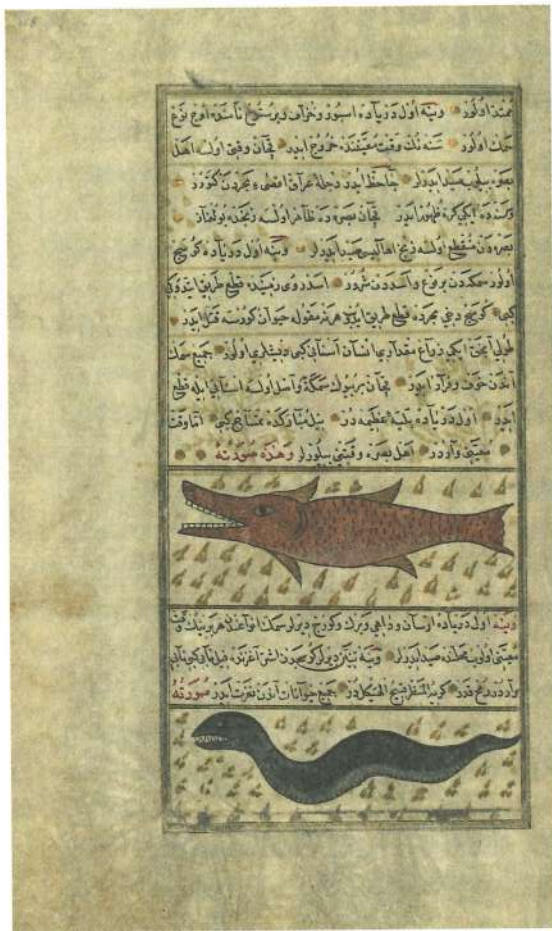 اولور وینه اول دریاده اسبور و خراف و برستوج نامنده اوج نوع
سمك اولور سنه نك وقت معیننده خروج ایدر قچان وقتی اولسه اهل
بصره بیلوب صید ایدرلر جاحظ ایدر دجلۀ عراق اقصیء بحردن كلور
ایكی كره ظهور ایدر قچان بصره ده ظاهر اولسه
بصره دن منقطع اولسه زنج اهالیسی صید ایدرلر وینه اول دریاده كوسج
اولور سمكدن بر نوع و اسددن شرور اسد روی زمینده قطع طریق ایتدوكی
كبی كوسج دخی بحرده قطع طریق ایدوب هر نه مقوله حیوان كورسه قتل ایدر
طولی آنجق ایكی ذراع مقداری انسان اسنانی كبی دیشلری اولور جمیع سمك
آندن خوف و فرار ایدر قچان بر بیوك سمكه واصل اولسه اسنانی ایله قطع
ایدر اول دریاده بلیۀ عظیمه در نیل مباركده تمساح كبی اما وقت
معینی واردر اهل بصره وقتنی بیلورلر وهذه صورته
وینه اول دریاده و كوسج دیرلر سمك انواعی هر برینك وقت
معینی اولوب محلنده صید ایدرلر وینه تنین دیرلر كوسجدن اشر
واردر كریه المنظر قبیح الشكلدر جمیع حیوانات آندن نفرت ایدر صورته